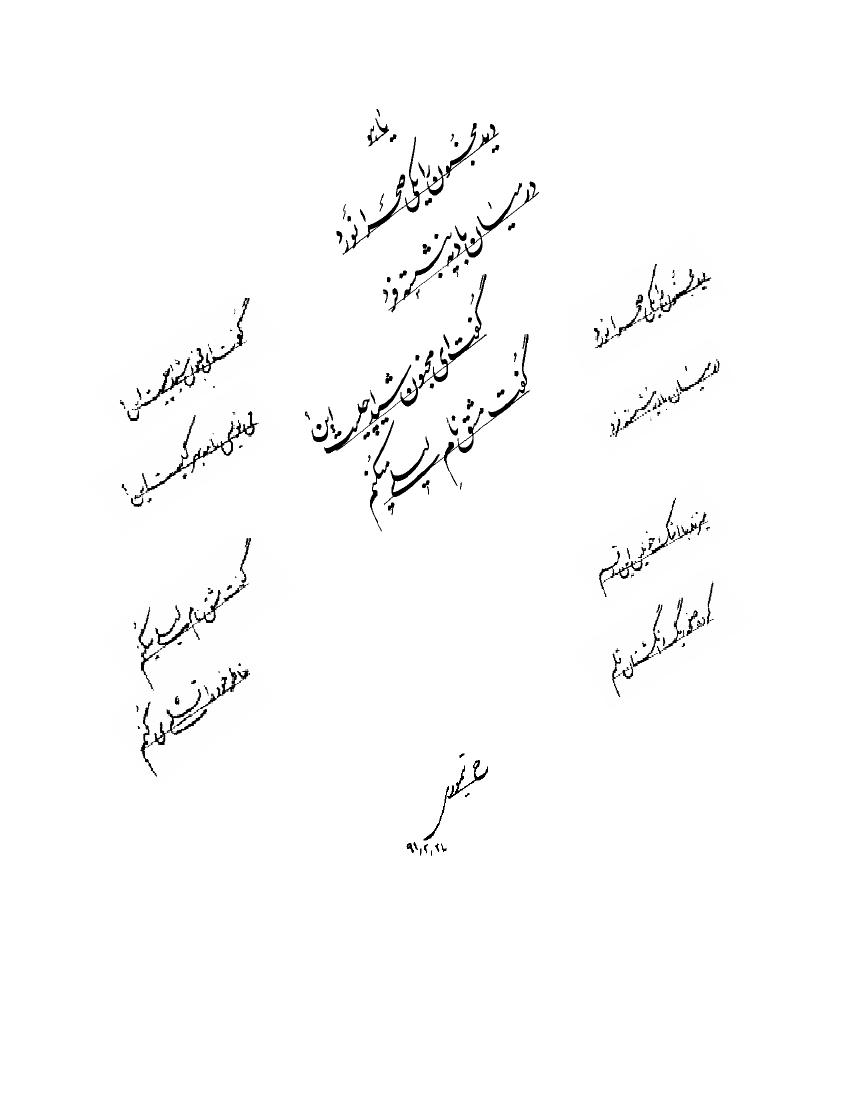 یا هو
دید مجنون را یکی صحرا نورد
در میان بادیه بنشسته فرد
گفت ای مجنون شیدا چیست این
گفت مشق نام لیلی میکنم
دید مجنون را یکی صحرا نورد
در میان بادیه بنشسته فرد
میزند با اشک خونین این رقم
کرده صفحه ریگ و انگشتان قلم
گفت ای مجنون شیدا چیست این
می نویسی نامه بهر کیست این
گفت مشق نام لیلی میکنم
خاطر خود را تسلی می کنم
ح تیموری
۹۱٫۲٫۲۸